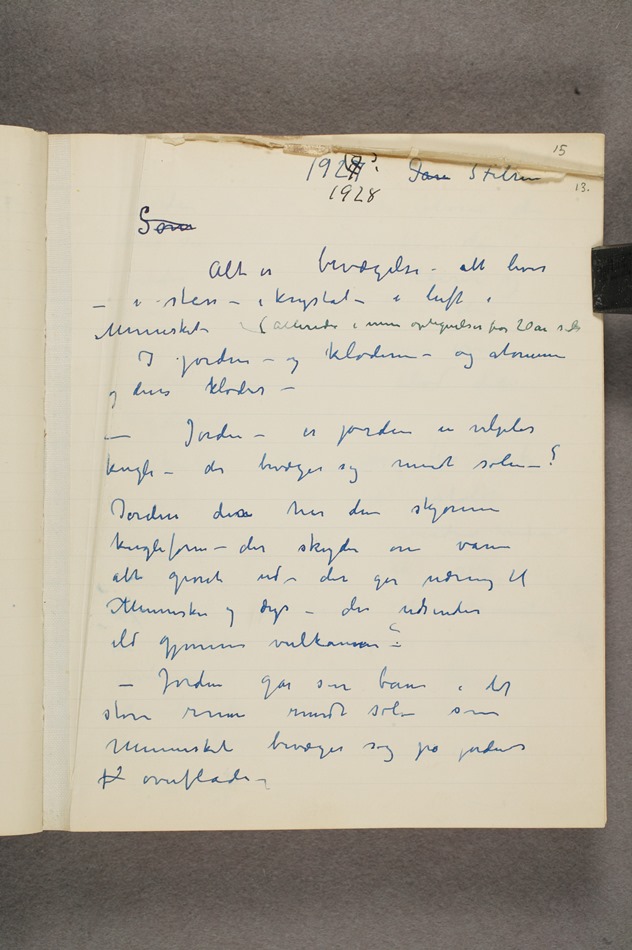 15
192
1928
13.
Som
Alt er bevægelse – alt lever
– i sten – i krystal – i luft i
Mennisket (allerede i mine optegnelser for 20 år
I jorden – og kloderne – og atomerne
og deres kloder –
– Jorden – er jorden en
kugle – der bevæger sig rundt solen – ?
Jorden har den skjønne
kugleform – der skyder om våren
alt grønt ud – der gir næring til
Mennesker og dyr – der udsender
ild gjennem vulkaner – ?
– Jorden går sin bane i det
store rum rundt solen som
Mennisket bevæger sig på jordens
overflade –